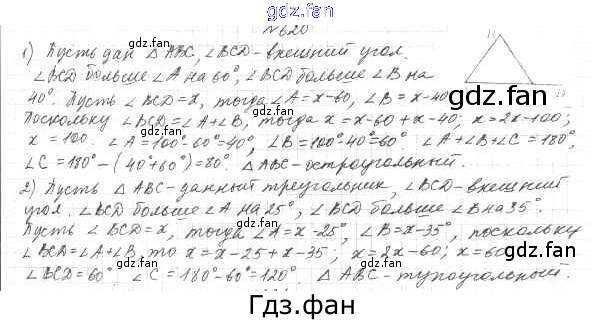 gdz.fan
№620
1) Пусть дан △ABC, ∠BCD - внешний угол.
∠BCD больше ∠A на 60°, ∠BCD больше ∠B на
40°. Пусть ∠BCD = x, тогда ∠A = x-60, ∠B = x-40
Поскольку ∠BCD = ∠A+∠B, тогда x = x-60+x-40; x = 2x-100;
x = 100. ∠A = 100°-60°=40°, ∠B = 100°-40°=60° ∠A+∠B+∠C = 180°,
∠C = 180° - (40°+60°) = 80°. △ABC - остроугольный.
2) Пусть △ABC - данный треугольник, ∠BCD - внешний
угол. ∠BCD больше ∠A на 25°, ∠BCD больше ∠B на 35°.
Пусть ∠BCD = x, тогда ∠A = x-25°, ∠B = x-35°, поскольку
∠BCD = ∠A+∠B, то x = x-25+x-35; x = 2x-60; x = 60
∠BCD = 60° ∠C = 180°-60°=120°. △ABC - тупоугольный.
Гдз.фан